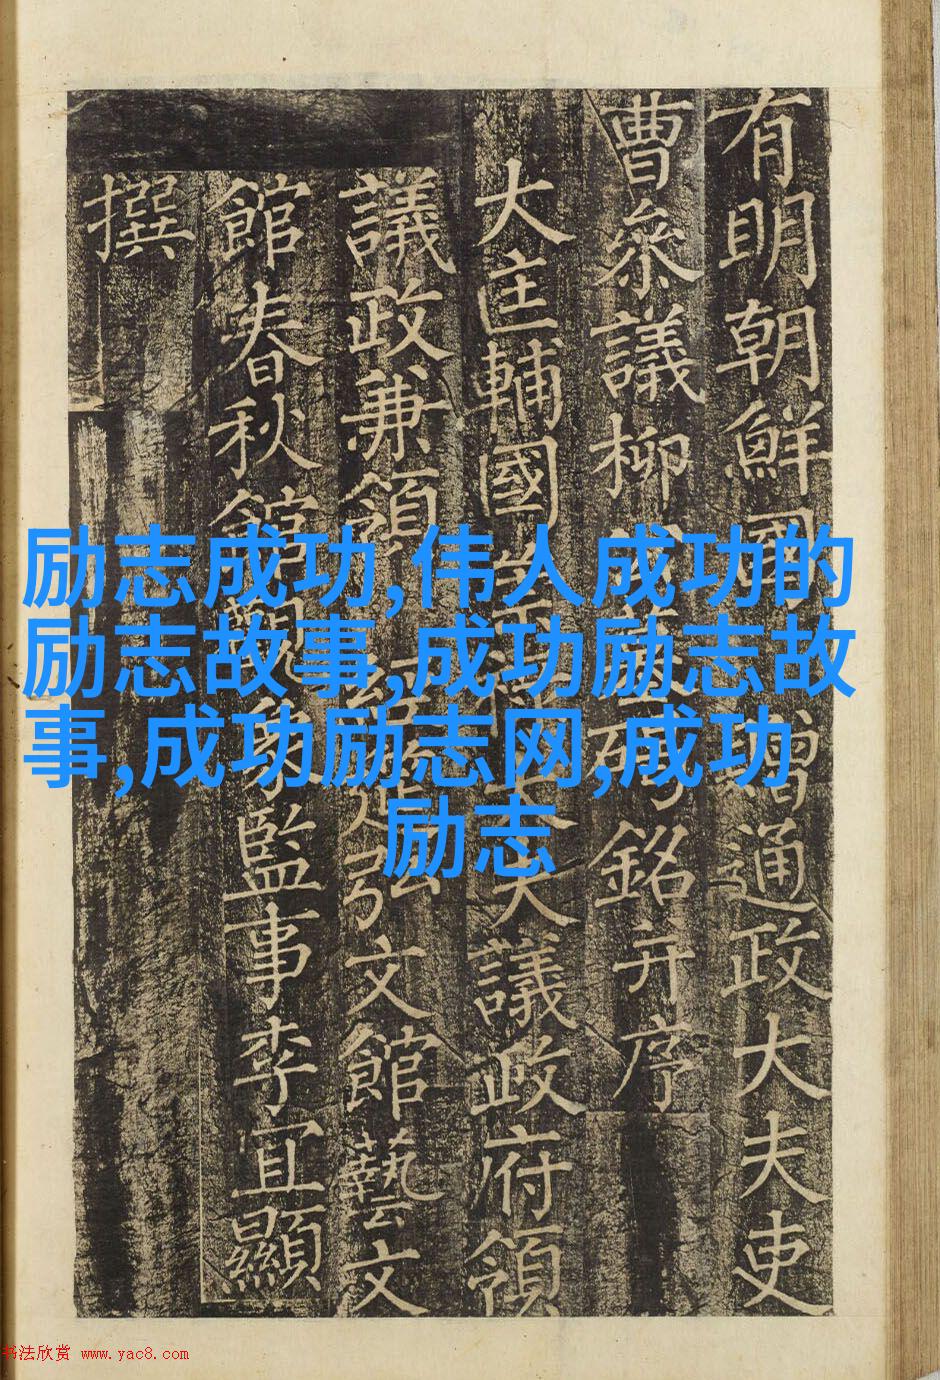 有明朝鮮國贈通政大夫吏
曹叅議柳銘并序
大匡輔國夫議政府領
議政兼領經筵弘文館藝文
館春秋館觀象監事李宜顯
撰
励志成功,伟人成功的
励志故事,成功励志故
事,成功励志网,成功
励志
书法欣赏 www.yac8.com